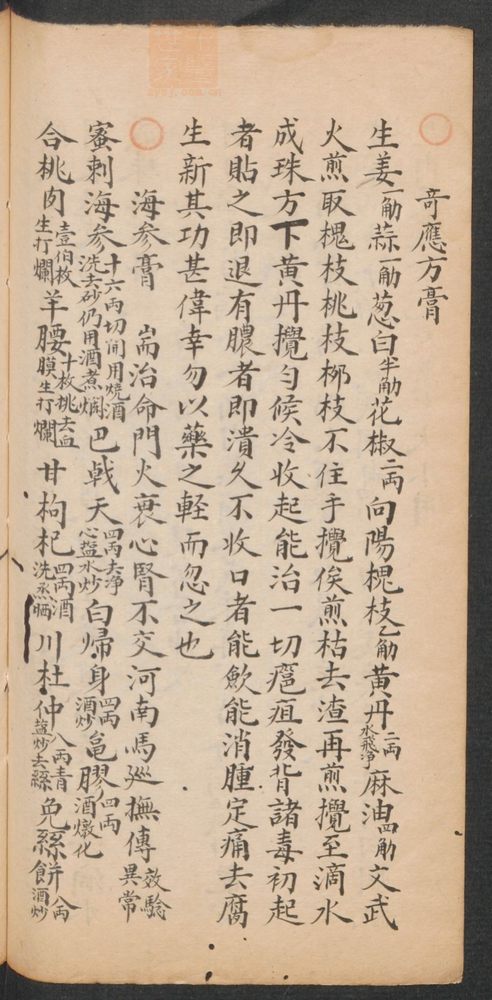 奇應方膏
生姜一觔蒜一觔葱白半觔花椒二両向陽槐枝乙觔黃丹二両水飛淨麻油四觔文武
火煎取槐枝桃枝柳枝不住手攪俟煎枯去渣再煎攪至滴水
成珠方下黃丹攪匀候冷收起能治一切癰疽發背諸毒初起
者貼之即退有膿者即潰久不收口者能歛能消腫定痛去腐
生新其功甚偉幸勿以藥之軽而忽之也
海参膏 耑治命門火衰心腎不交河南馬廵撫傳效騐異常
蜜刺海参十六両切開用燒酒洗去砂仍用酒煮爛巴戟天四両去淨心盐水炒白帰身四両酒炒龜膠四両酒燉化
合桃肉壹伯枚生打爛羊腰十枚挑去血膜生打爛甘枸杞四両酒洗烝晒川杜仲八両青盐炒去絲兔絲餅八両酒炒